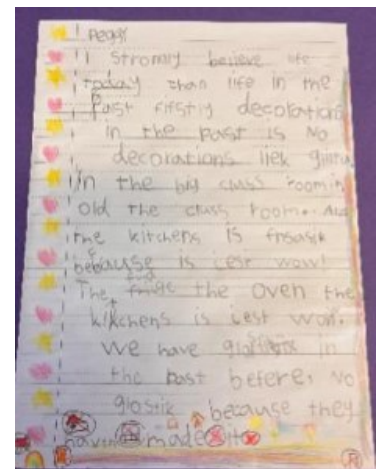 Peggy
I stromly believe life
today than life in the
Past firstly decorations
in the past is no
decorations liek glittu
in the big class room in
old the class room. And
the kitchens is
because is Jest wow!
The the oven the
kikchens is Jest wow.
We have in
the past before, no
glostik because they
haven made it